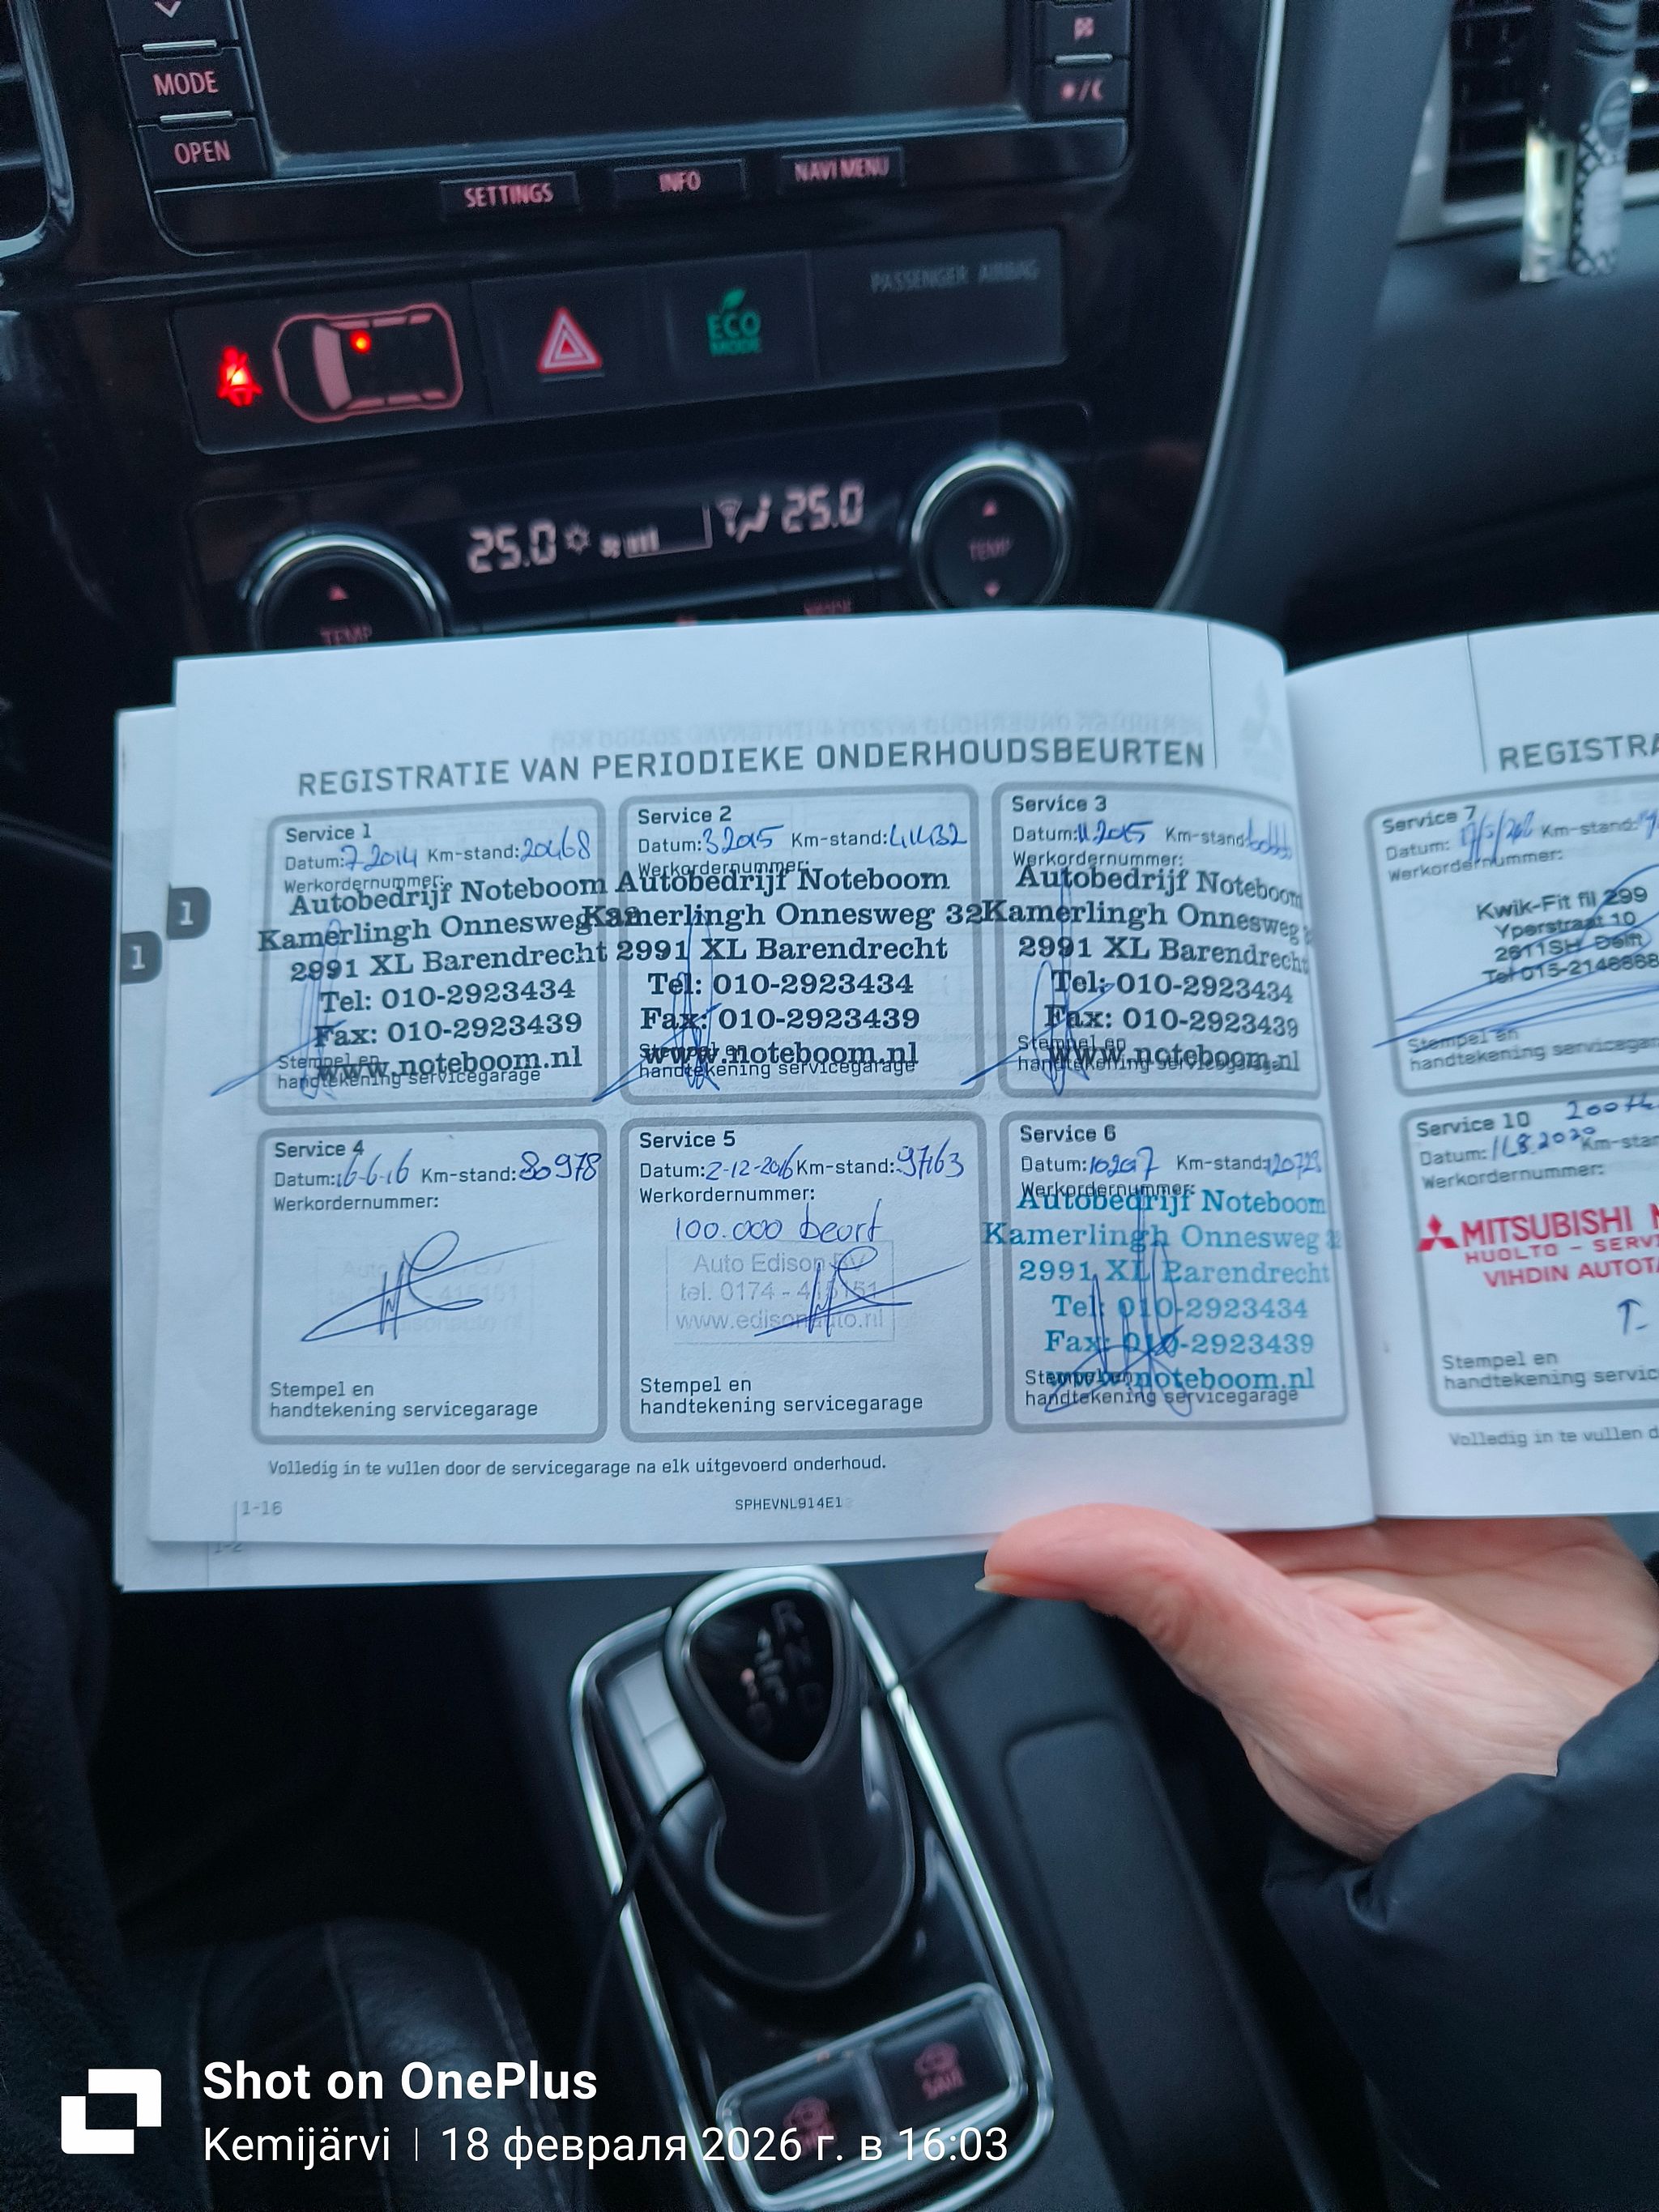 MODE
OPEN
SETTINGS
INFO
NAVI MENU
PASSENGER AIRBAG
ECO
MODE
25.0
25.0
TEMP
TEMP
REGISTRATIE VAN PERIODIEKE ONDERHOUDSBEURTEN
1
1
Service 1
Datum: 7-2014 Km-stand: 20468
Werkordernummer:
Autobedrijf Noteboom
Kamerlingh Onnesweg
2991 XL Barendrecht
Tel: 010-2923434
Fax: 010-2923439
www.noteboom.nl
Stempel en
handtekening servicegarage
Service 2
Datum: 3 2015 Km-stand:
Werkordernummer:
Autobedrijf Noteboom
Kamerlingh Onnesweg 32
2991 XL Barendrecht
Tel: 010-2923434
Fax: 010-2923439
www.noteboom.nl
Stempel en
handtekening servicegarage
Service 3
Datum: 11 2015 Km-stand:
Werkordernummer:
Autobedrijf Noteboom
Kamerlingh Onnesweg
2991 XL Barendrecht
Tel: 010-2923434
Fax: 010-2923439
www.noteboom.nl
Stempel en
handtekening servicegarage
Service 4
Datum: 16-6-16 Km-stand: 80978
Werkordernummer:
Stempel en
handtekening servicegarage
Service 5
Datum: 2-12-2016 Km-stand: 97163
Werkordernummer:
100.000 beurt
Auto Edison BV
tel. 0174 -
www.edisonauto.nl
Stempel en
handtekening servicegarage
Service 6
Datum: 10 2017 Km-stand: 120723
Werkordernummer:
Autobedrijf Noteboom
Kamerlingh Onnesweg 32
2991 XL Barendrecht
Tel: 010-2923434
Fax: 010-2923439
www.noteboom.nl
Stempel en
handtekening servicegarage
Volledig in te vullen door de servicegarage na elk uitgevoerd onderhoud.
1-16
SPHEVNL914E1
1-2
REGISTRA
Service 7
Datum: Km-stand:
Werkordernummer:
Kwik-Fit fil 299
Yperstraat 10
2611SH Delft
Tel 015-2146668
Stempel en
handtekening servicegar
Service 10
Datum: 11.8.2020 Km-stan
Werkordernummer:
MITSUBISHI
HUOLTO - SERV
VIHDIN AUTOT
Stempel en
handtekening servic
Volledig in te vullen d
Shot on OnePlus
Kemijärvi | 18 февраля 2026 г. в 16:03